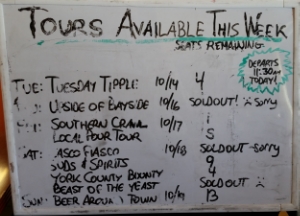 TOURS AVAILABLE THIS WEEK
SEATS REMAINING
DEPARTS
11:30AM
TODAY!
TUE: TUESDAY TIPPLE 10/14 4
UPSIDE OF BAYSIDE 10/16 SOLDOUT! Sorry
SOUTHERN CRAWL 10/17 1
LOCAL POUR TOUR 5
SAT: CASCO FIASCO 10/18 SOLDOUT Sorry
SUDS & SPIRITS 9
YORK COUNTY BOUNTY 4
BEAST OF THE YEAST SOLDOUT
SUN: BEER AROUND TOWN 10/19 13